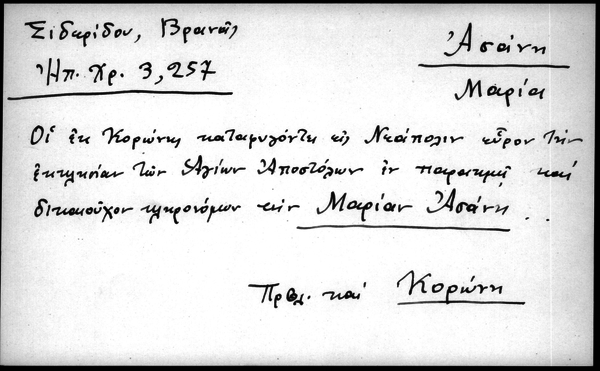 Σιδερίδου, Βρανᾶς
Ἀσάνη
Ἠπ. Χρ. 3,257
Μαρία
Οἱ ἐκ Κορώνης καταφυγόντες εἰς Νεάπολιν εὗρον τὴν
ἐκκλησίαν τῶν Ἁγίων Ἀποστόλων ἐν παρακμῇ καὶ
δικαιοῦχον κληρονόμων τὴν Μαρίαν Ἀσάνη . .
Πρβλ. καὶ Κορώνη